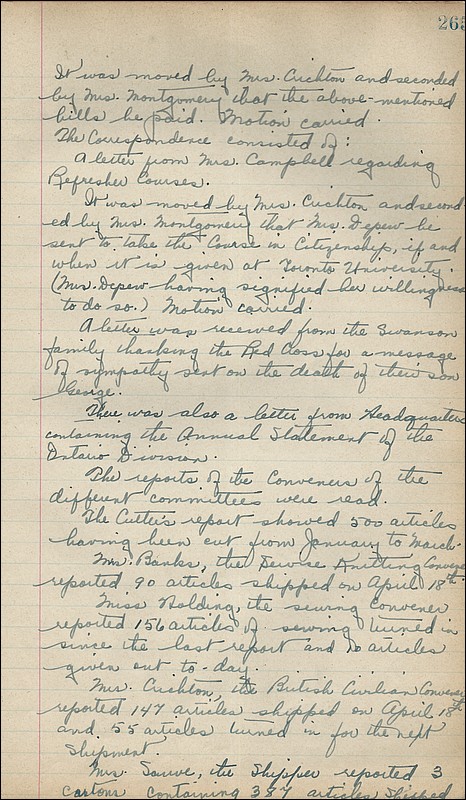 265
It was moved by Mrs. Crichton and seconded
by Mrs. Montgomery that the above-mentioned
bills be paid. Motion carried.
The Correspondence consisted of:
A letter from Mrs. Campbell regarding
Refresher Courses.
It was moved by Mrs. Crichton and second-
ed by Mrs. Montgomery that Mrs. Depew be
sent to take the Course in Citizenship, if and
when it is given at Toronto University.
(Mrs. Depew having signified her willingness
to do so.) Motion carried.
A letter was received from the Swanson
family thanking the Red Cross for a message
of sympathy sent on the death of their son
George.
There was also a letter from Headquarters
containing the Annual Statement of the
Ontario Division.
The reports of the Conveners of the
different committees were read.
The Cutter's report showed 500 articles
having been cut from January to March.
Mrs. Banks, the Service Knitting Convener
reported 90 articles shipped on April 18th.
Miss Holding, the sewing convener
reported 156 articles of sewing turned in
since the last report and articles
given out to-day.
Mrs. Crichton, the British Civilian Convener
reported 147 articles shipped on April 18th
and 55 articles turned in for the next
shipment.
Mrs. Sauve, the Shipper reported 3
cartons containing 387 articles shipped